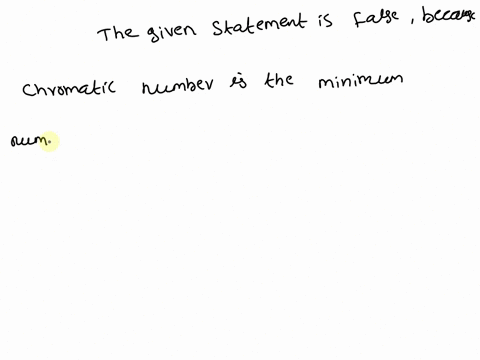 The given Statement is false, because
Chromatic number is the minimum
num.